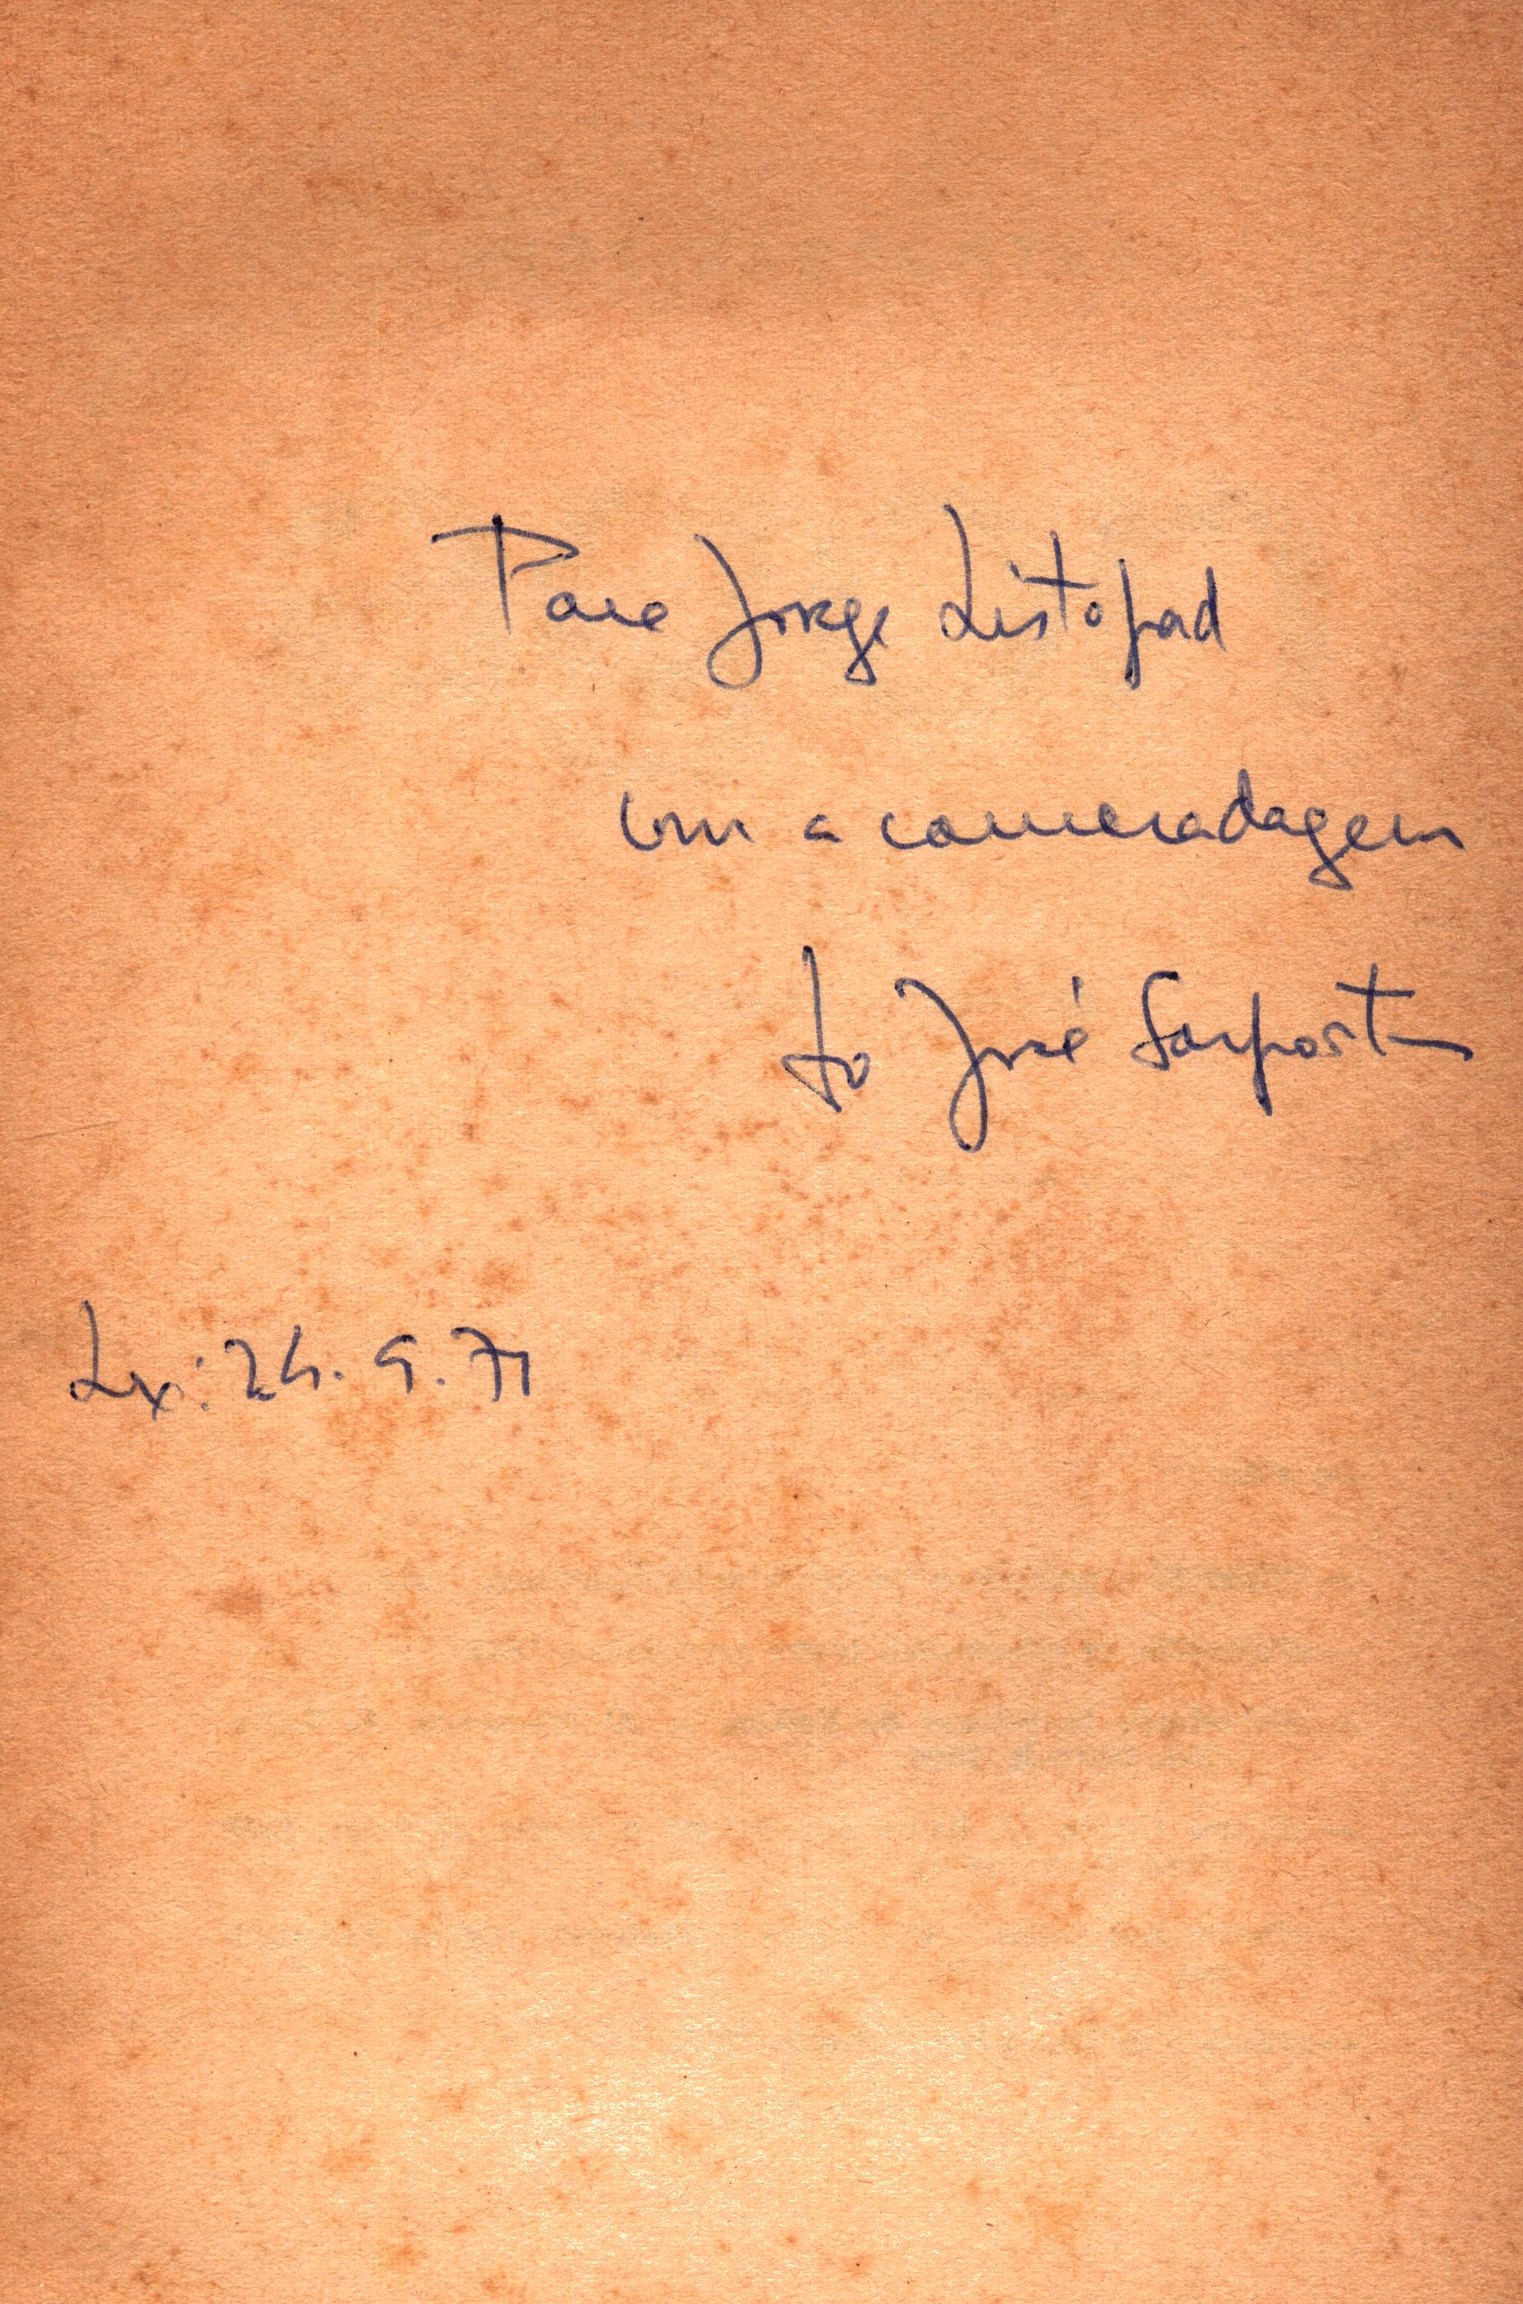 Para Jorge Listopad
com a camaradagem
do José Sasportes
Lx: 24.9.71